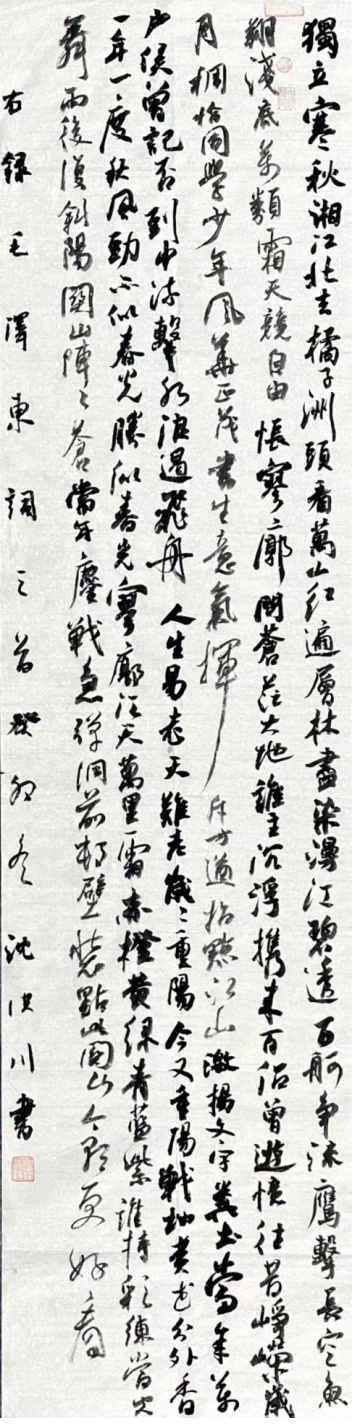 獨立寒秋湘江北去橘子洲頭看萬山紅遍層林盡染漫江碧透百舸争流鷹擊長空魚
翔淺底萬類霜天競自由悵寥廓問蒼茫大地誰主沉浮携來百侶曾遊憶往昔崢嶸歲
月稠恰同學少年風華正茂書生意氣揮斥方遒指點江山激揚文字糞土當年萬
户侯曾記否到中流擊水浪遏飛舟人生易老天難老歲歲重陽今又重陽戰地黄花分外香
一年一度秋風勁不似春光勝似春光寥廓江天萬里霜赤橙黄綠青藍紫誰持彩練當空
舞雨後復斜陽關山陣陣蒼當年鏖戰急彈洞前村壁裝點此關山今朝更好看
右錄毛澤東詞三首癸卯冬沈洪川書